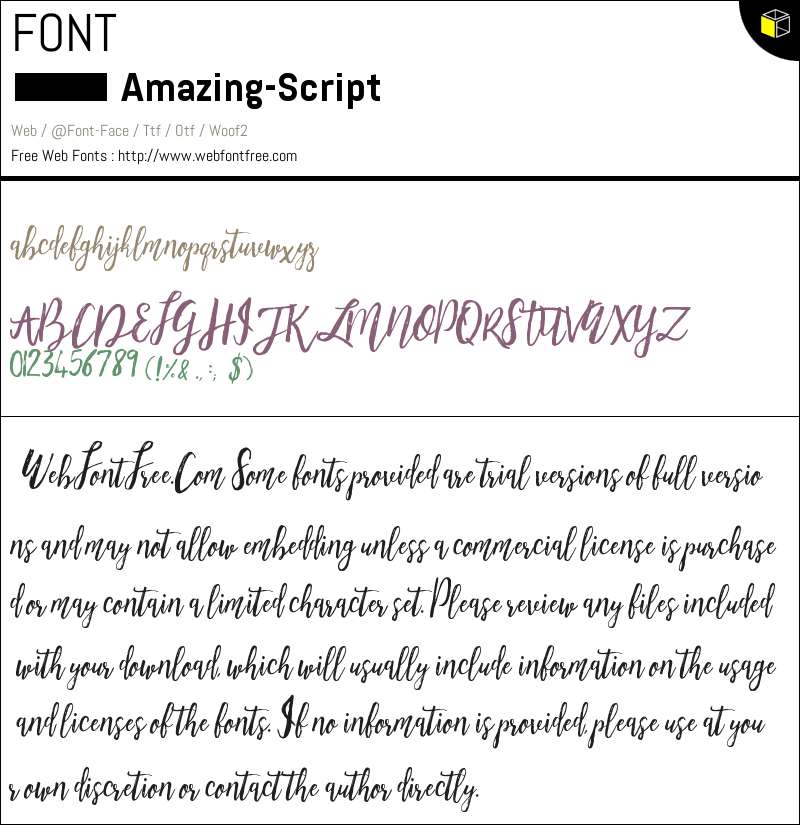 FONT
Amazing-Script
Web / @Font-Face / Ttf / Otf / Woof2
Free Web Fonts : http://www.webfontfree.com
abcdefghijklmnopqrstuvwxyz
ABCDEFGHIJKLMNOPQRSTUVWXYZ
0123456789 (!%& .,:; $)
WebFontFree.Com Some fonts provided are trial versions of full versio
ns and may not allow embedding unless a commercial license is purchase
d or may contain a limited character set. Please review any files included
with your download, which will usually include information on the usage
and licenses of the fonts. If no information is provided, please use at you
r own discretion or contact the author directly.